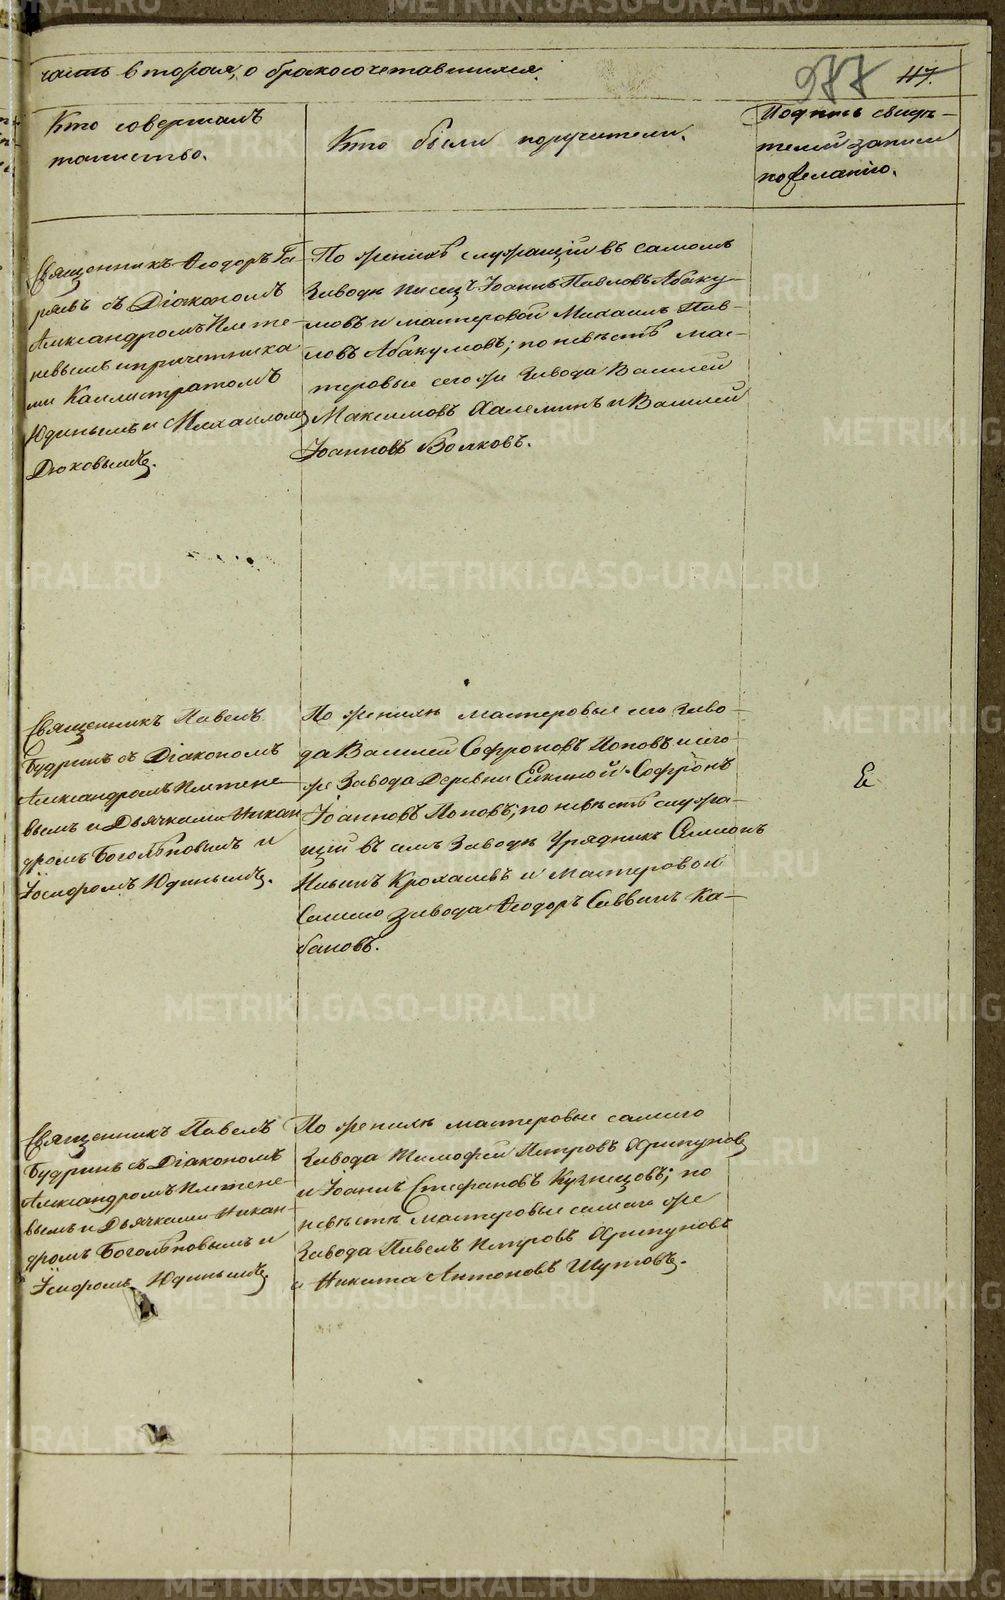 часть вторая, о бракосочетавшихся.
977
117.
Кто совершалъ
таинство.
Кто были поручители.
Подпись свидѣ-
телей записи
по желанію.
Священникъ Ѳеодоръ
съ Діакономъ
Александромъ Плете-
невымъ и причетника-
ми Каллистратомъ
Юдинымъ и Михаиломъ
Дюковымъ.
По женихѣ служащій въ самомъ
Заводѣ писецъ Іоаннъ Павловъ Абаку-
мовъ и мастеровой Михаилъ Пав-
ловъ Абакумовъ; по невѣстѣ мас-
теровые сего же Завода Василей
Максимовъ Халеминъ и Василей
Іоанновъ Волковъ.
Священникъ Павелъ
Будринъ съ Діакономъ
Александромъ Плетене-
вымъ и Дьячками Никан-
дромъ Боголѣповымъ и
Іосифомъ Юдинымъ.
По женихѣ мастеровые сего Заво-
да Василей Софроновъ Поповъ и сего
же Завода Деревни Софронъ
Іоанновъ Поповъ; по невѣстѣ служа-
щій въ семъ Заводѣ Урядникъ Симионъ
Ильинъ Крохалевъ и Мастеровой
Самаго Завода Ѳеодоръ Саввинъ Ка-
бановъ.
Священникъ Павелъ
Будринъ съ Діакономъ
Александромъ Плетене-
вымъ и Дьячками Никан-
дромъ Боголѣповымъ и
Юдинымъ.
По женихѣ мастеровые самаго
Завода Тимофей Петровъ Хрипуновъ
и Іоаннъ Стефановъ Кузнецовъ; по
невѣстѣ Мастеровые самаго же
Завода Павелъ Петровъ Хрипуновъ
и Никита Антоновъ Шутовъ.
METRIKI.GASO-URAL.RU